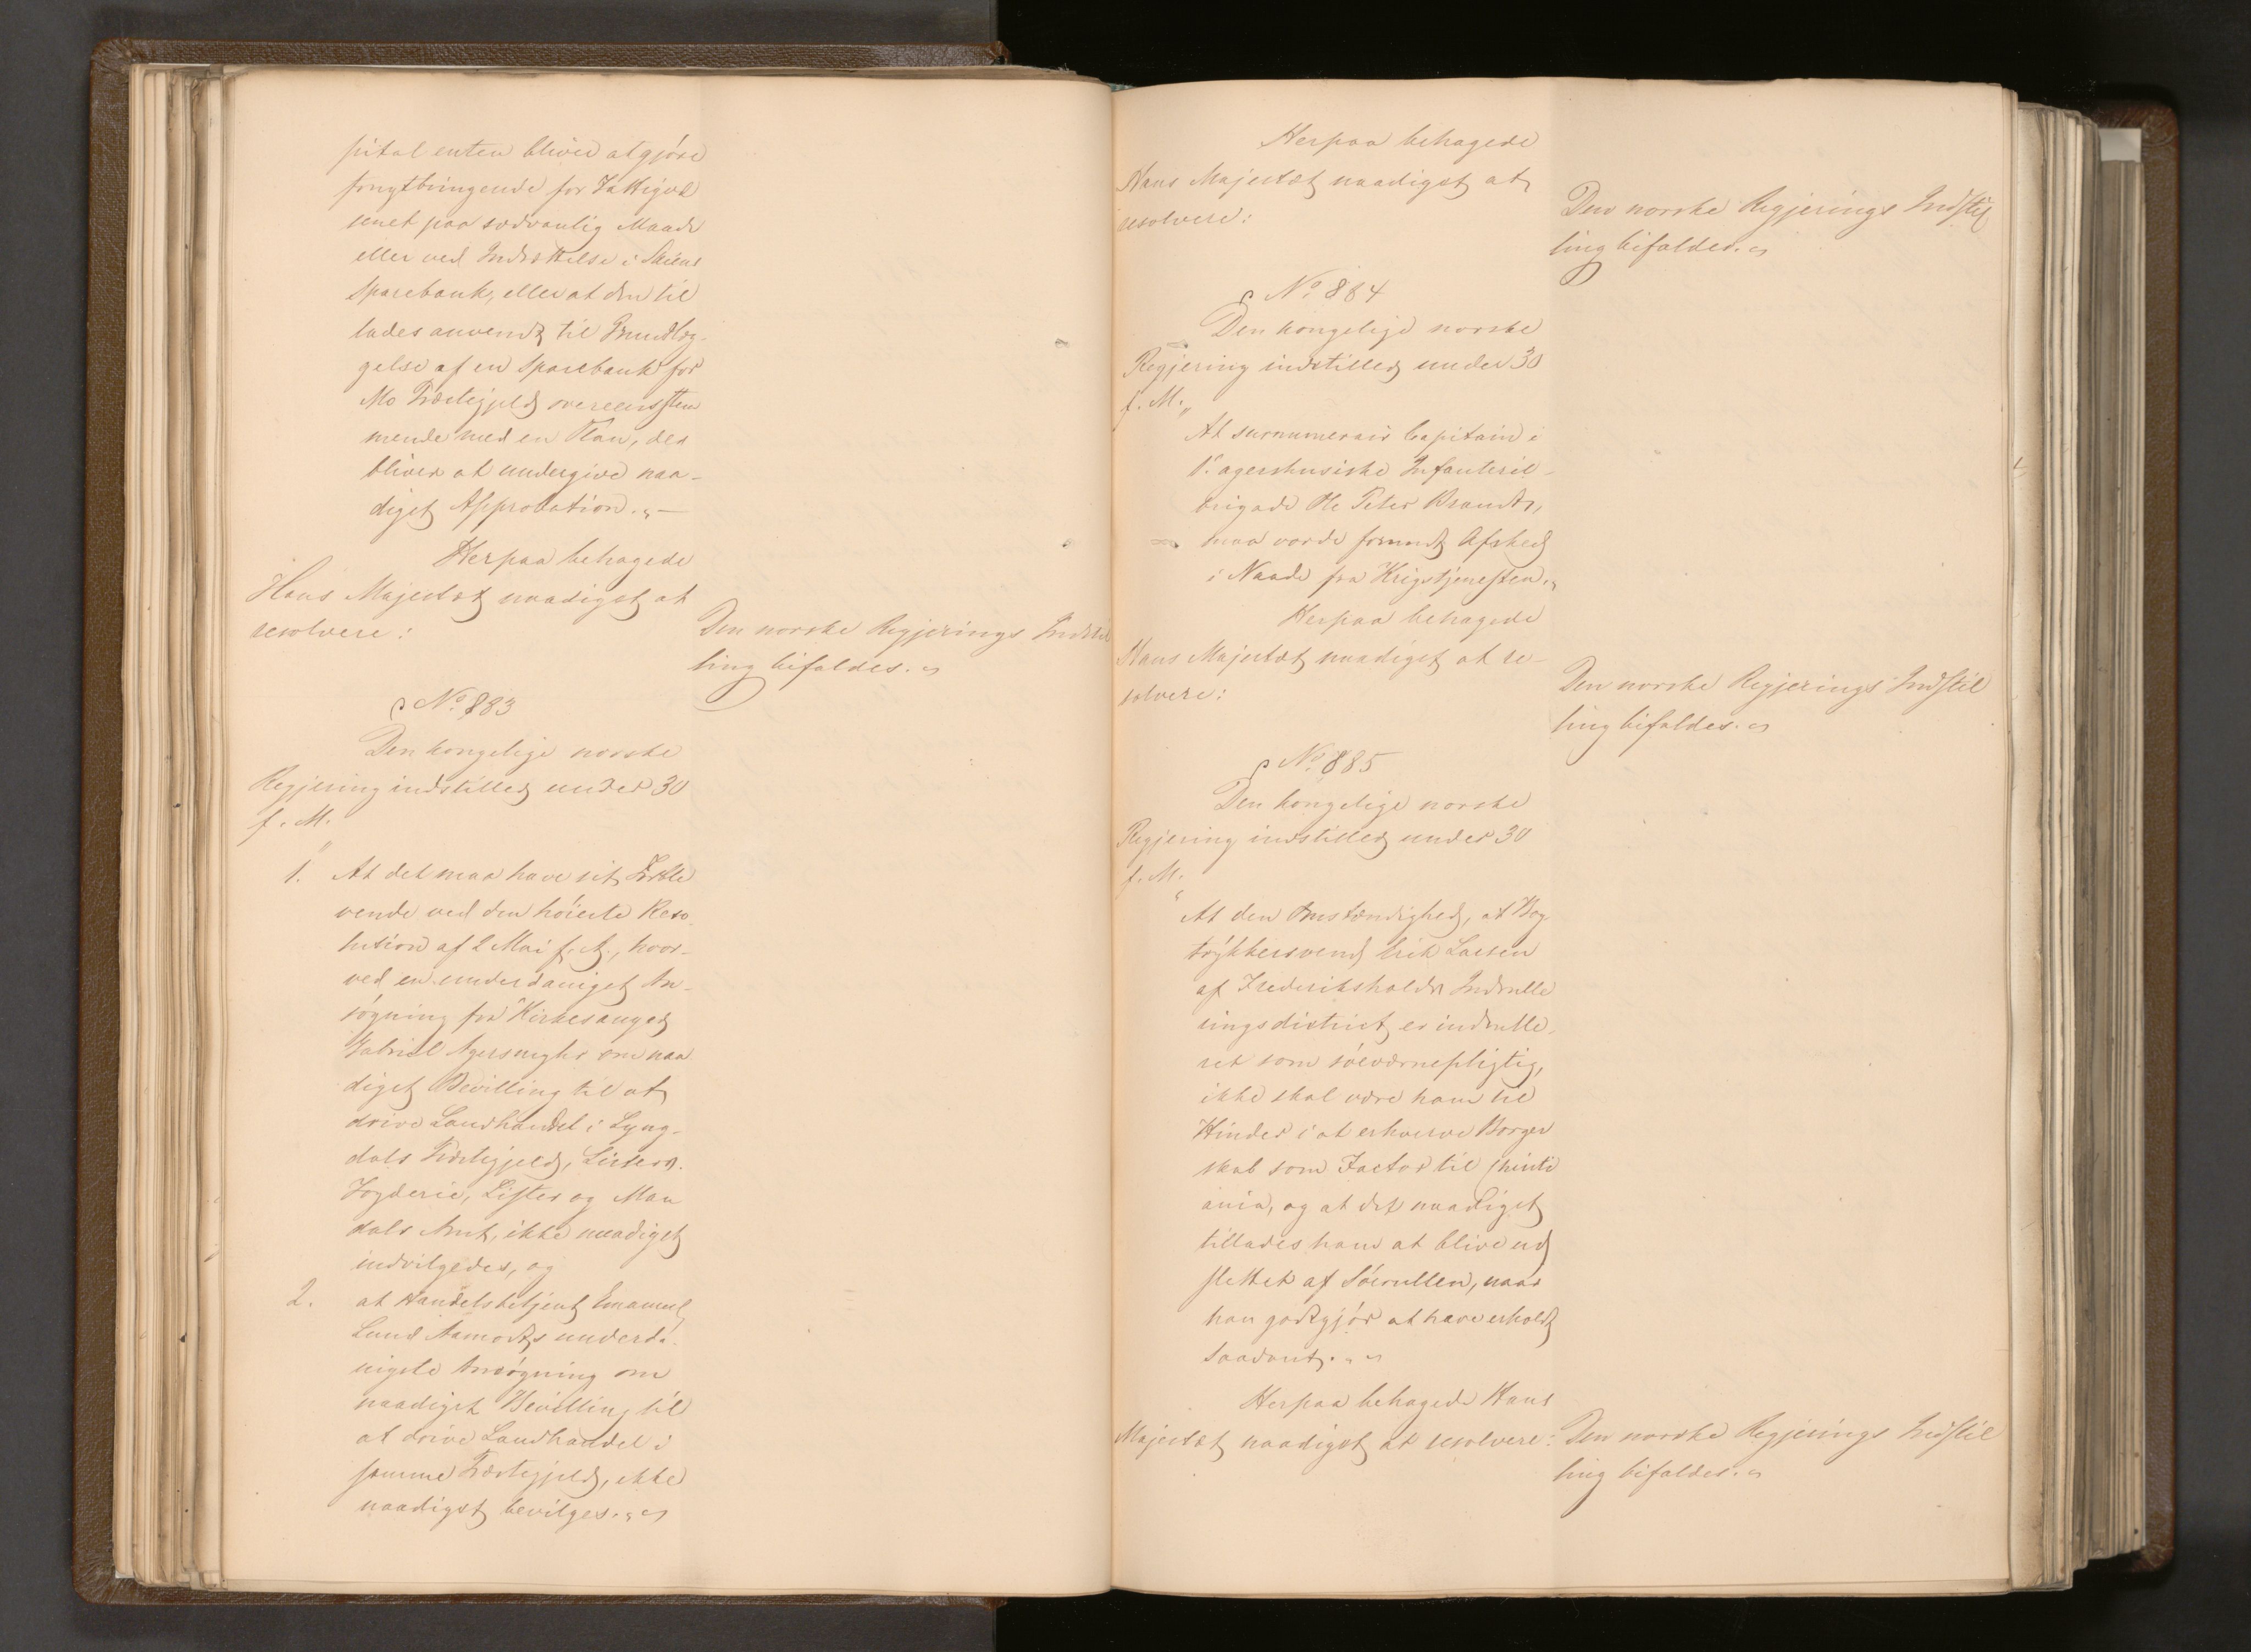 pital enten bliver at gjøre
frugtbringende for Fattigvæ
senet paa sædvanlig Maade
eller ved Indsættelse i Skiens
Sparebank, eller at den til
lades anvendt til Grundlæg-
gelse af en Sparebank for
Mo Præstegjeld overeenstem
mende med en Plan, der
bliver at undergive naa-
digst Approbation.„ —
Herpaa behagede
Hans Majestæt naadigst at
resolvere:
Den norske Regjerings Indstil
ling bifaldes.
No. 883
Den kongelige norske
Regjering indstilled under 30
f. M.
„
1. At det maa have sit Forble
vende ved den høieste Reso
lution af 2 Mai f. A., hvor-
ved en underdanigst An-
søgning fra Kirkesanger
Gabriel om naa
digst Bevilling til at
drive Landhandel i Lyng-
dals Præstegjeld, Listers
Fogderie, Lister og Man
dals Amt, ikke naadigst
indvilgedes, og
2. at Handelsbetjent Emanuel
Lund Aamodts underda
nigste Ansøgning om
naadigst Bevilling til
at drive Landhandel i
samme Præstegjeld, ikke
naadigst bevilges.„
Herpaa behagede
Hans Majestæt naadigst at
resolvere:
Den norske Regjerings Indstil
ling bifaldes.
No. 884
Den kongelige norske
Regjering indstilled under 30
f. M. „
At surnumerair Capitain i
1ste agershusiske Infanterie-
brigade Ole Peter Brandt,
maa vorde forundt Afsked
i Naade fra Krigstjenesten.„
Herpaa behagede
Hans Majestæt naadigst at re-
solvere:
Den norske Regjerings Indstil
ling bifaldes.
No. 885
Den kongelige norske
Regjering indstilled under 30
f. M.
„At den Omstændighed, at Bog
trykkersvend Erik Larsen
af Frederikshalds Indrulle
ringsdistrict er indrulle-
ret som søeværnepligtig,
ikke skal være ham til
Hinder i at erhverve Borger
skab som Factor til Christi
ania, og at det naadigst
tillades ham at blive ud
slettet af Søerullen, naar
han godtgjør at have erholdt
saadant.„
Herpaa behagede Hans
Majestæt naadigst at resolvere:
Den norske Regjerings Indstil
ling bifaldes.